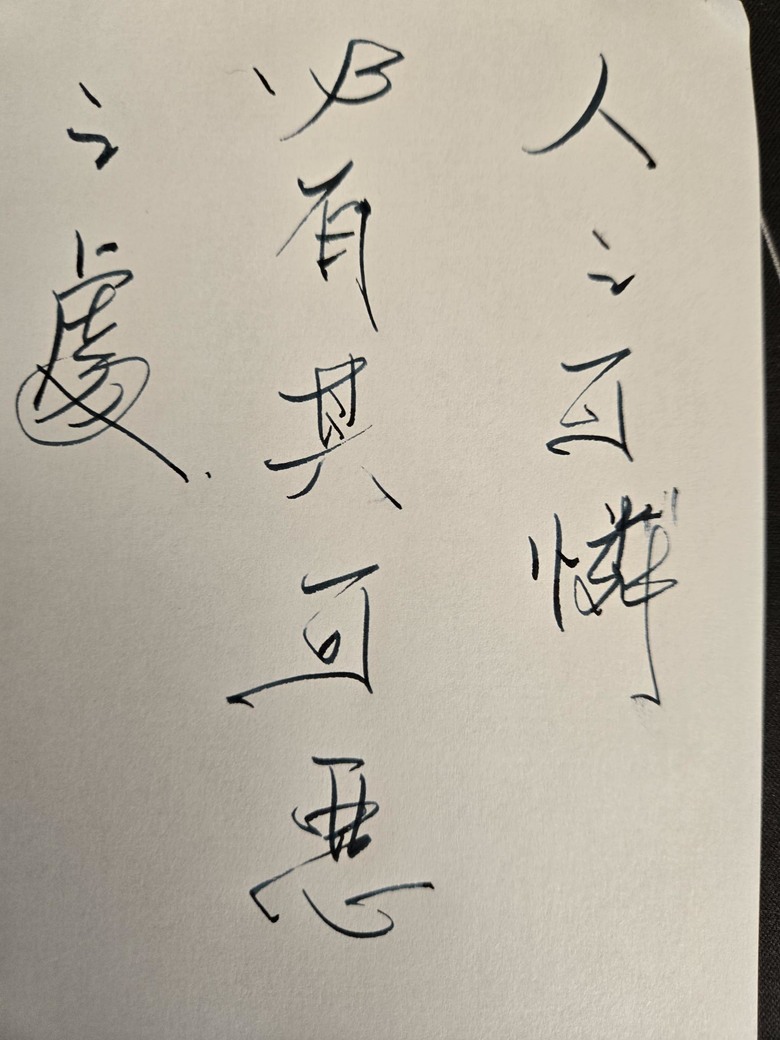 人之可憐
必有其可惡
之處